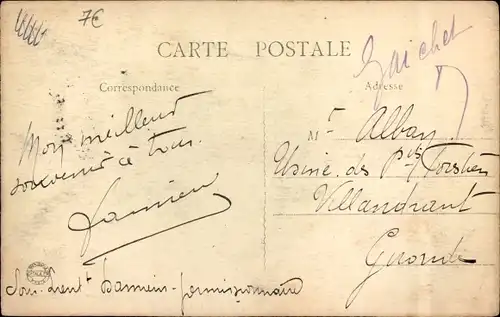 7€
CARTE POSTALE
Guichet
Correspondance
Adresse
Mon meilleur
souvenir à tous.
Damien
Mr Albay
Usine des Pts Forstiers
Villandraut
Gironde
Sous-Lient Damien - permissionnaire